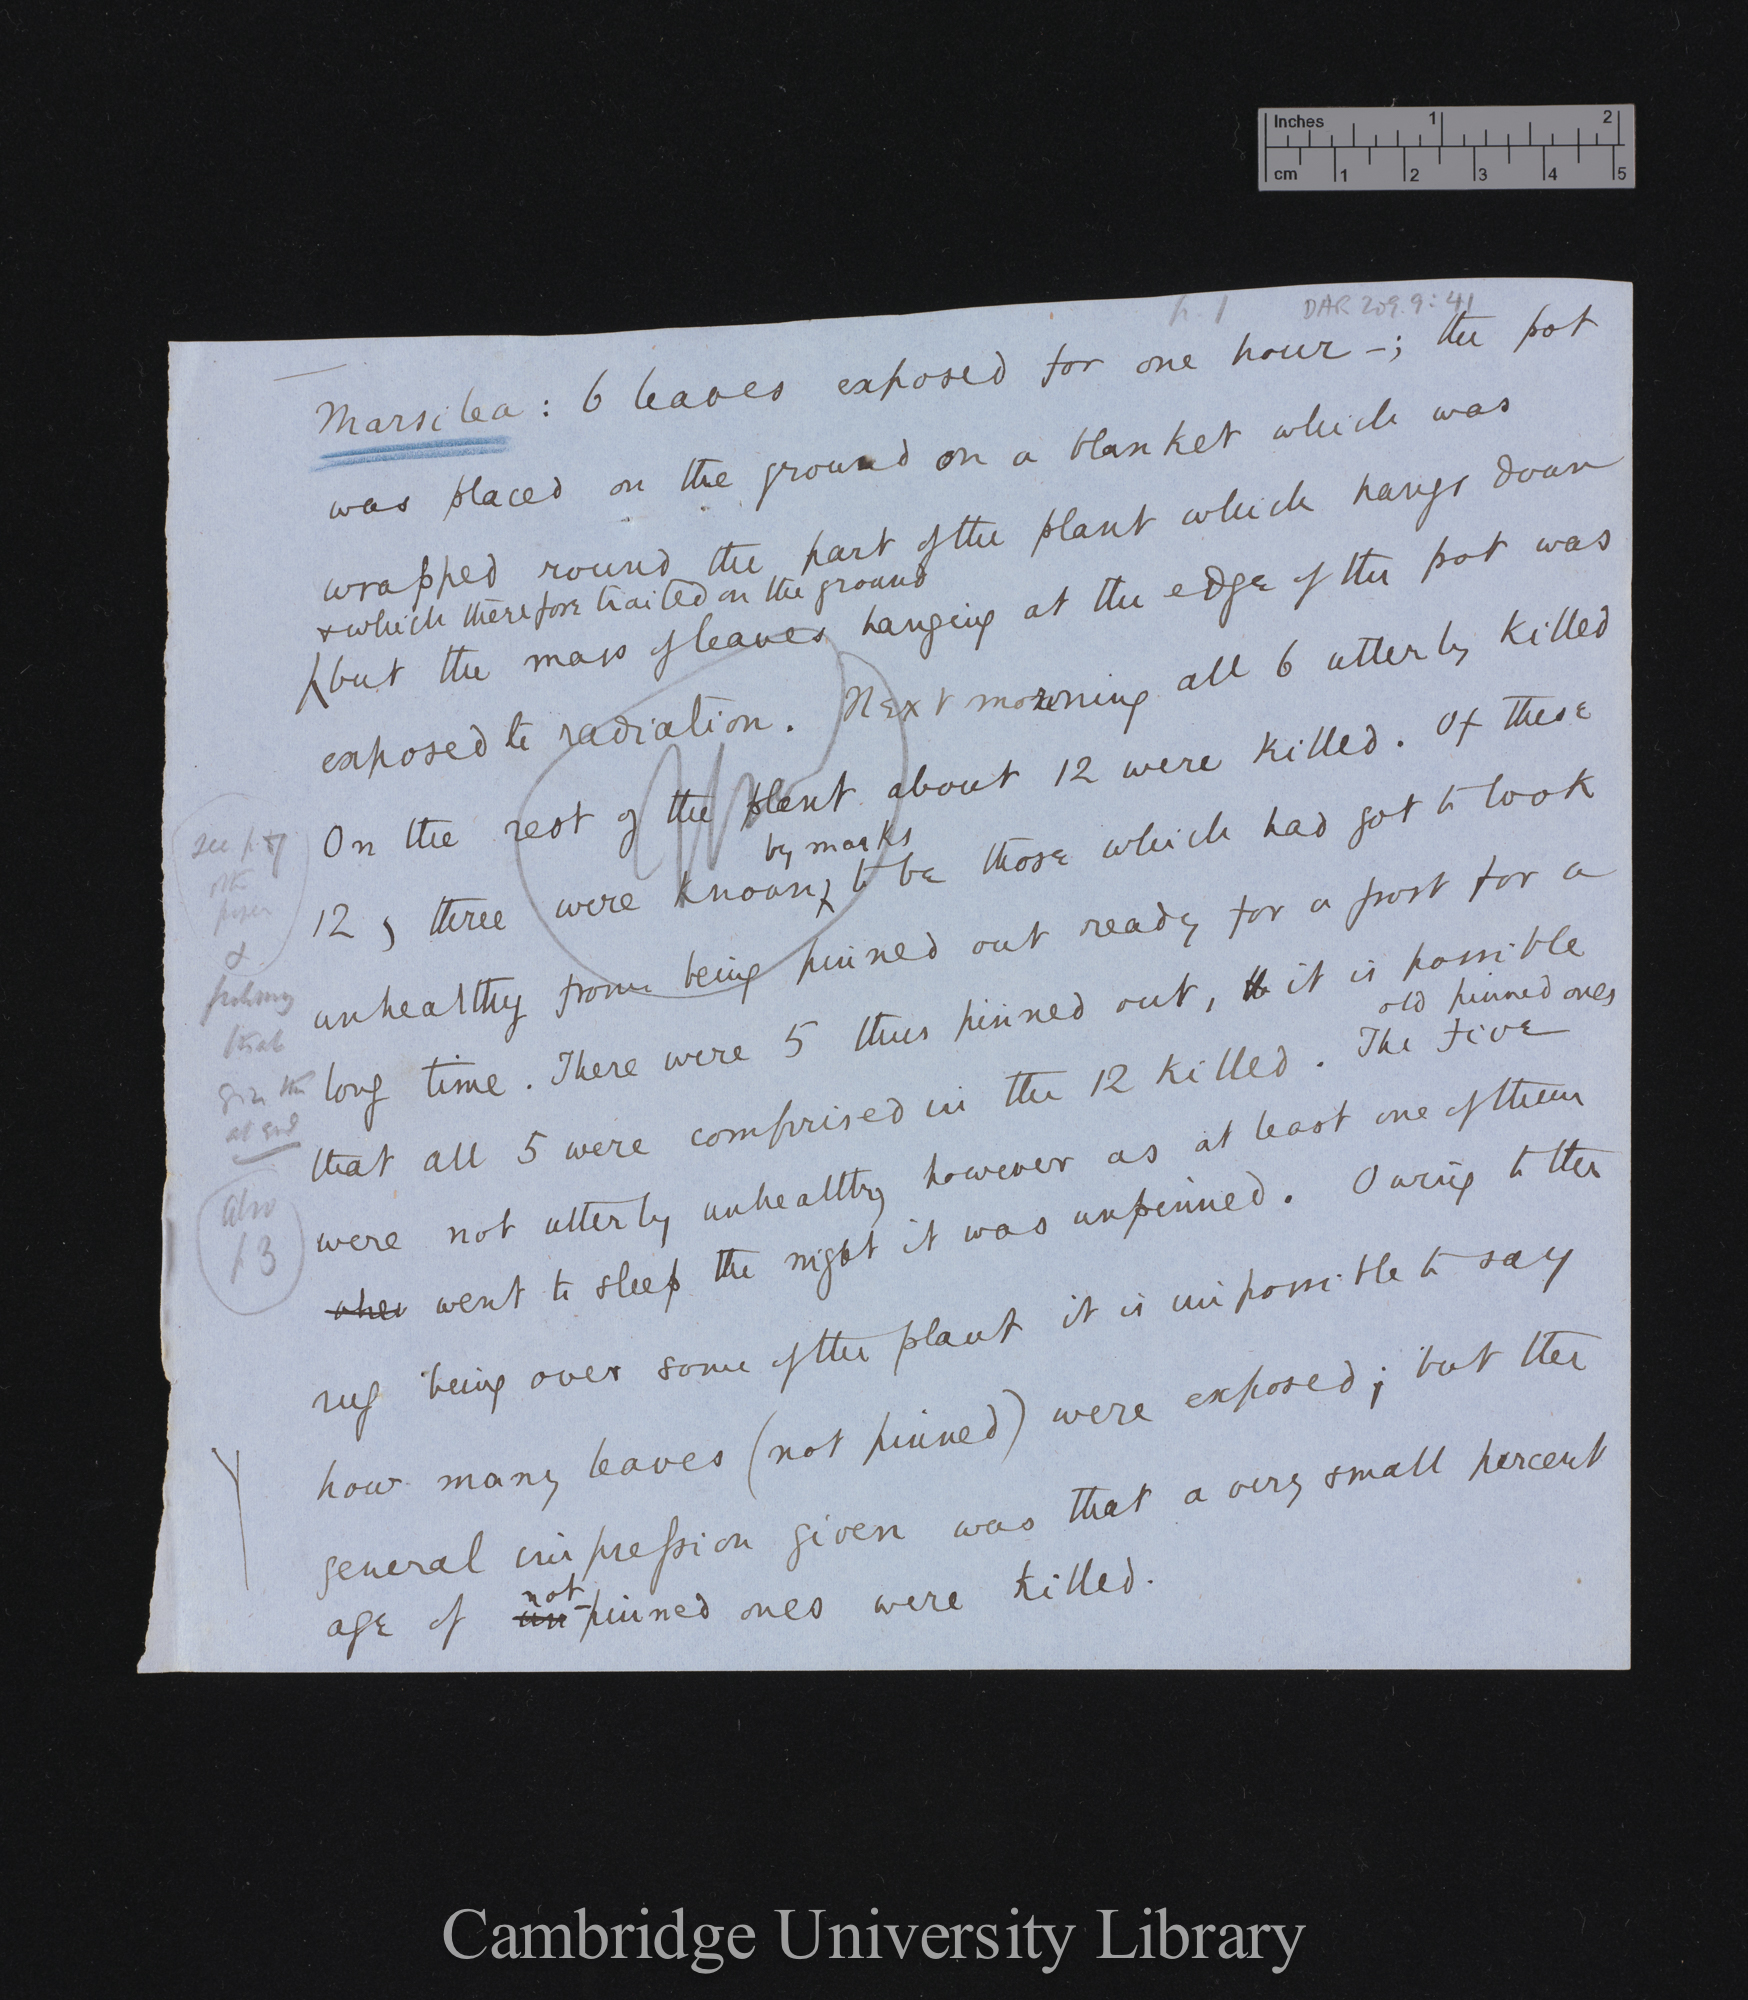 Inches 1 2
cm 1 2 3 4 5
p. 1 DAR 209.9:41
Marsilea : 6 leaves exposed for one hour – ; the pot
was placed on the ground on a blanket which was
wrapped round the part of the plant which hangs down
& which therefore trailed on the ground
but the mass of leaves hanging at the edge of the pot was
exposed to radiation. Next morning all 6 utterly killed
On the rest of the plant about 12 were killed. Of these
by marks
12, three were known to be those which had got to look
unhealthy from being pinned out ready for a frost for a
long time. There were 5 thus pinned out, it is possible
old pinned ones
that all 5 were comprised in the 12 killed. The five
were not utterly unhealthy however as at least one of them
when went to sleep the night it was unpinned. Owing to the
rug being over some of the plant it is impossible to say
how many leaves (not pinned) were exposed; but the
general impression given was that a very small percent
not
age of un-pinned ones were killed.
see p.
&
that
give the
at end
also
p 3
Cambridge University Library